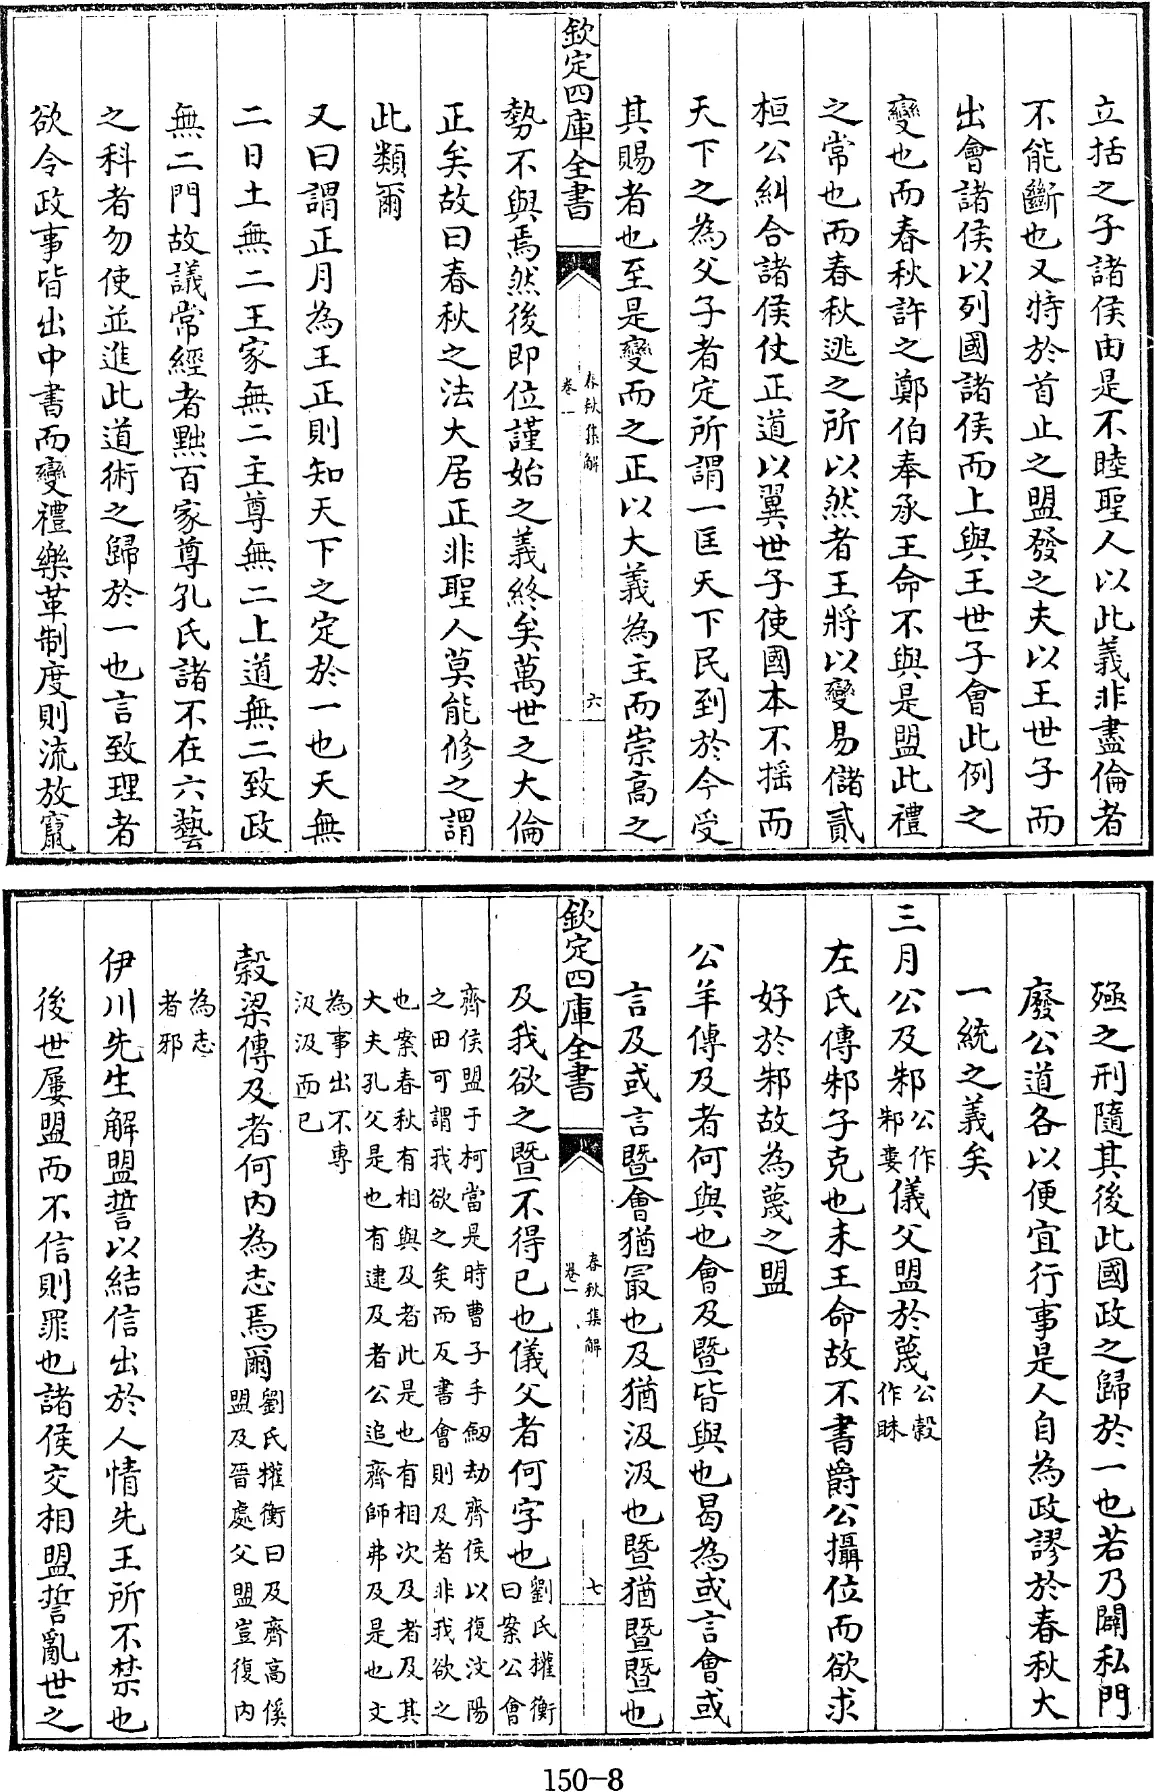 立括之子諸侯由是不睦聖人以此義非盡倫者
不能斷也又特於首止之盟發之夫以王世子而
出會諸侯以列國諸侯而上與王世子會此例之
變也而春秋許之鄭伯奉承王命不與是盟此禮
之常也而春秋逃之所以然者王將以變易儲貳
桓公糾合諸侯仗正道以翼世子使國本不搖而
天下之為父子者定所謂一匡天下民到於今受
其賜者也至是變而之正以大義為主而崇高之
欽定四庫全書
春秋集解
卷一
六
勢不與焉然後即位謹始之義終矣萬世之大倫
正矣故曰春秋之法大居正非聖人莫能修之謂
此類爾
又曰謂正月為王正則知天下之定於一也天無
二日土無二王家無二主尊無二上道無二致政
無二門故議常經者黜百家尊孔氏諸不在六藝
之科者勿使並進此道術之歸於一也言致理者
欲令政事皆出中書而變禮樂革制度則流放竄
殛之刑隨其後此國政之歸於一也若乃闢私門
廢公道各以便宜行事是人自為政謬於春秋大
一統之義矣
三月公及邾公作邾婁儀父盟於蔑公穀作眛
左氏傳邾子克也未王命故不書爵公攝位而欲求
好於邾故為蔑之盟
公羊傳及者何與也會及暨皆與也曷為或言會或
言及或言暨會猶㝡也及猶汲汲也暨猶暨暨也
欽定四庫全書
春秋集解
卷一
七
及我欲之暨不得已也儀父者何字也劉氏權衡曰案公會
齊侯盟于柯當是時曹子手劒劫齊侯以復汶陽
之田可謂我欲之矣而反書會則及者非我欲之
也案春秋有相與及者此是也有相次及者及其
大夫孔父是也有逮及者公追齊師弗及是也文
為事出不專
汲汲而已
穀梁傳及者何內為志焉爾劉氏權衡曰及齊高傒盟及晉處父盟豈復內
為志
者邪
伊川先生解盟誓以結信出於人情先王所不禁也
後世屢盟而不信則罪也諸侯交相盟誓亂世之
150-8